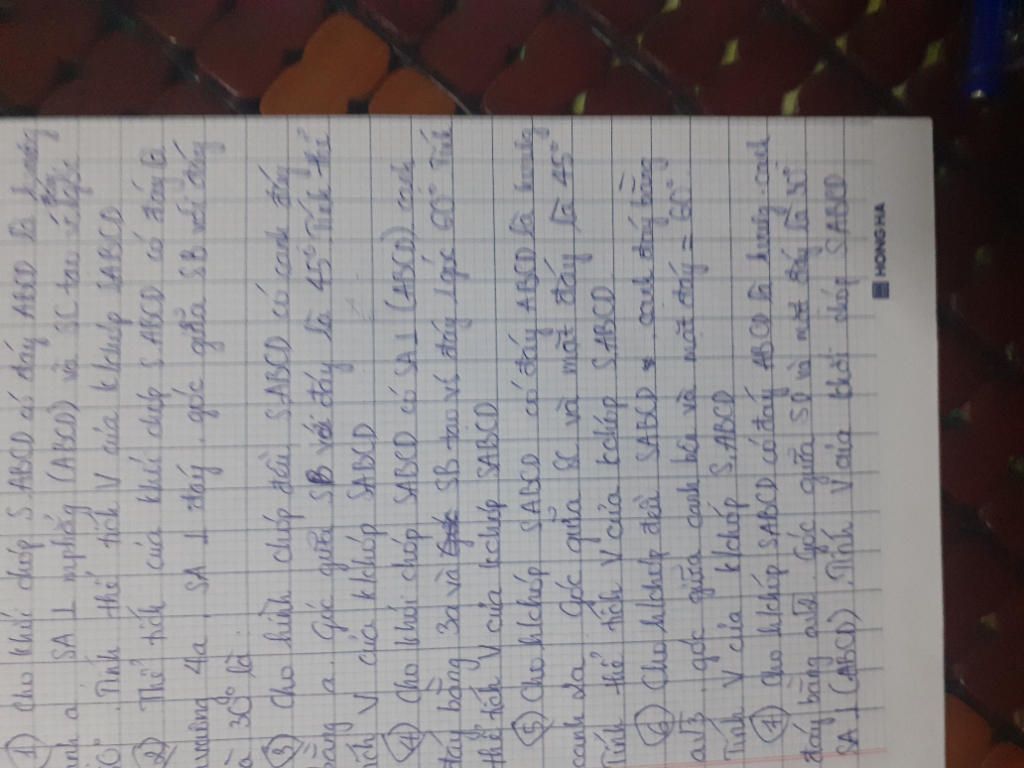 ① Cho khối chóp S.ABCD có đáy ABCD là h vuông
cạnh a SA ⊥ mphẳng (ABCD) và SC tạo vs góc
Tính thể tích V của k/chóp SABCD
② Thể tích của khối chóp S.ABCD có đáy là
vuông 4a. SA ⊥ đáy. góc giữa SB với đáy
30° là
③ Cho hình chóp đều SABCD có cạnh đáy
bằng a. Góc giữa SB với đáy là 45° Tính thể
tích V của k/chóp SABCD
④ Cho khối chóp SABCD có SA ⊥ (ABCD) cạnh
đáy bằng 3a và SB tạo vs đáy 1 góc 60° Tính
thể tích V của k/chóp SABCD
⑤ Cho h/chóp SABCD có đáy ABCD là vuông
cạnh 2a Góc giữa SC và mặt đáy là 45°
Tính thể tích V của k/chóp SABCD
⑥ Cho h/chóp đều SABCD cạnh đáy bằng
a√3 góc giữa cạnh bên và mặt đáy = 60°
Tính V của k/chóp S.ABCD
⑦ Cho h/chóp SABCD có đáy ABCD là h vuông cạnh
đáy bằng Góc giữa SD và mặt đáy là
SA ⊥ (ABCD). Tính V của khối chóp SABCD
HONG HA